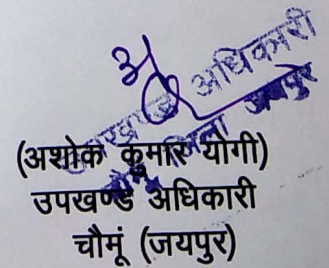 उपखण्ड अधिकारी
जिला जयपुर
(अशोक कुमार योगी)
उपखण्ड अधिकारी
चौमूं (जयपुर)